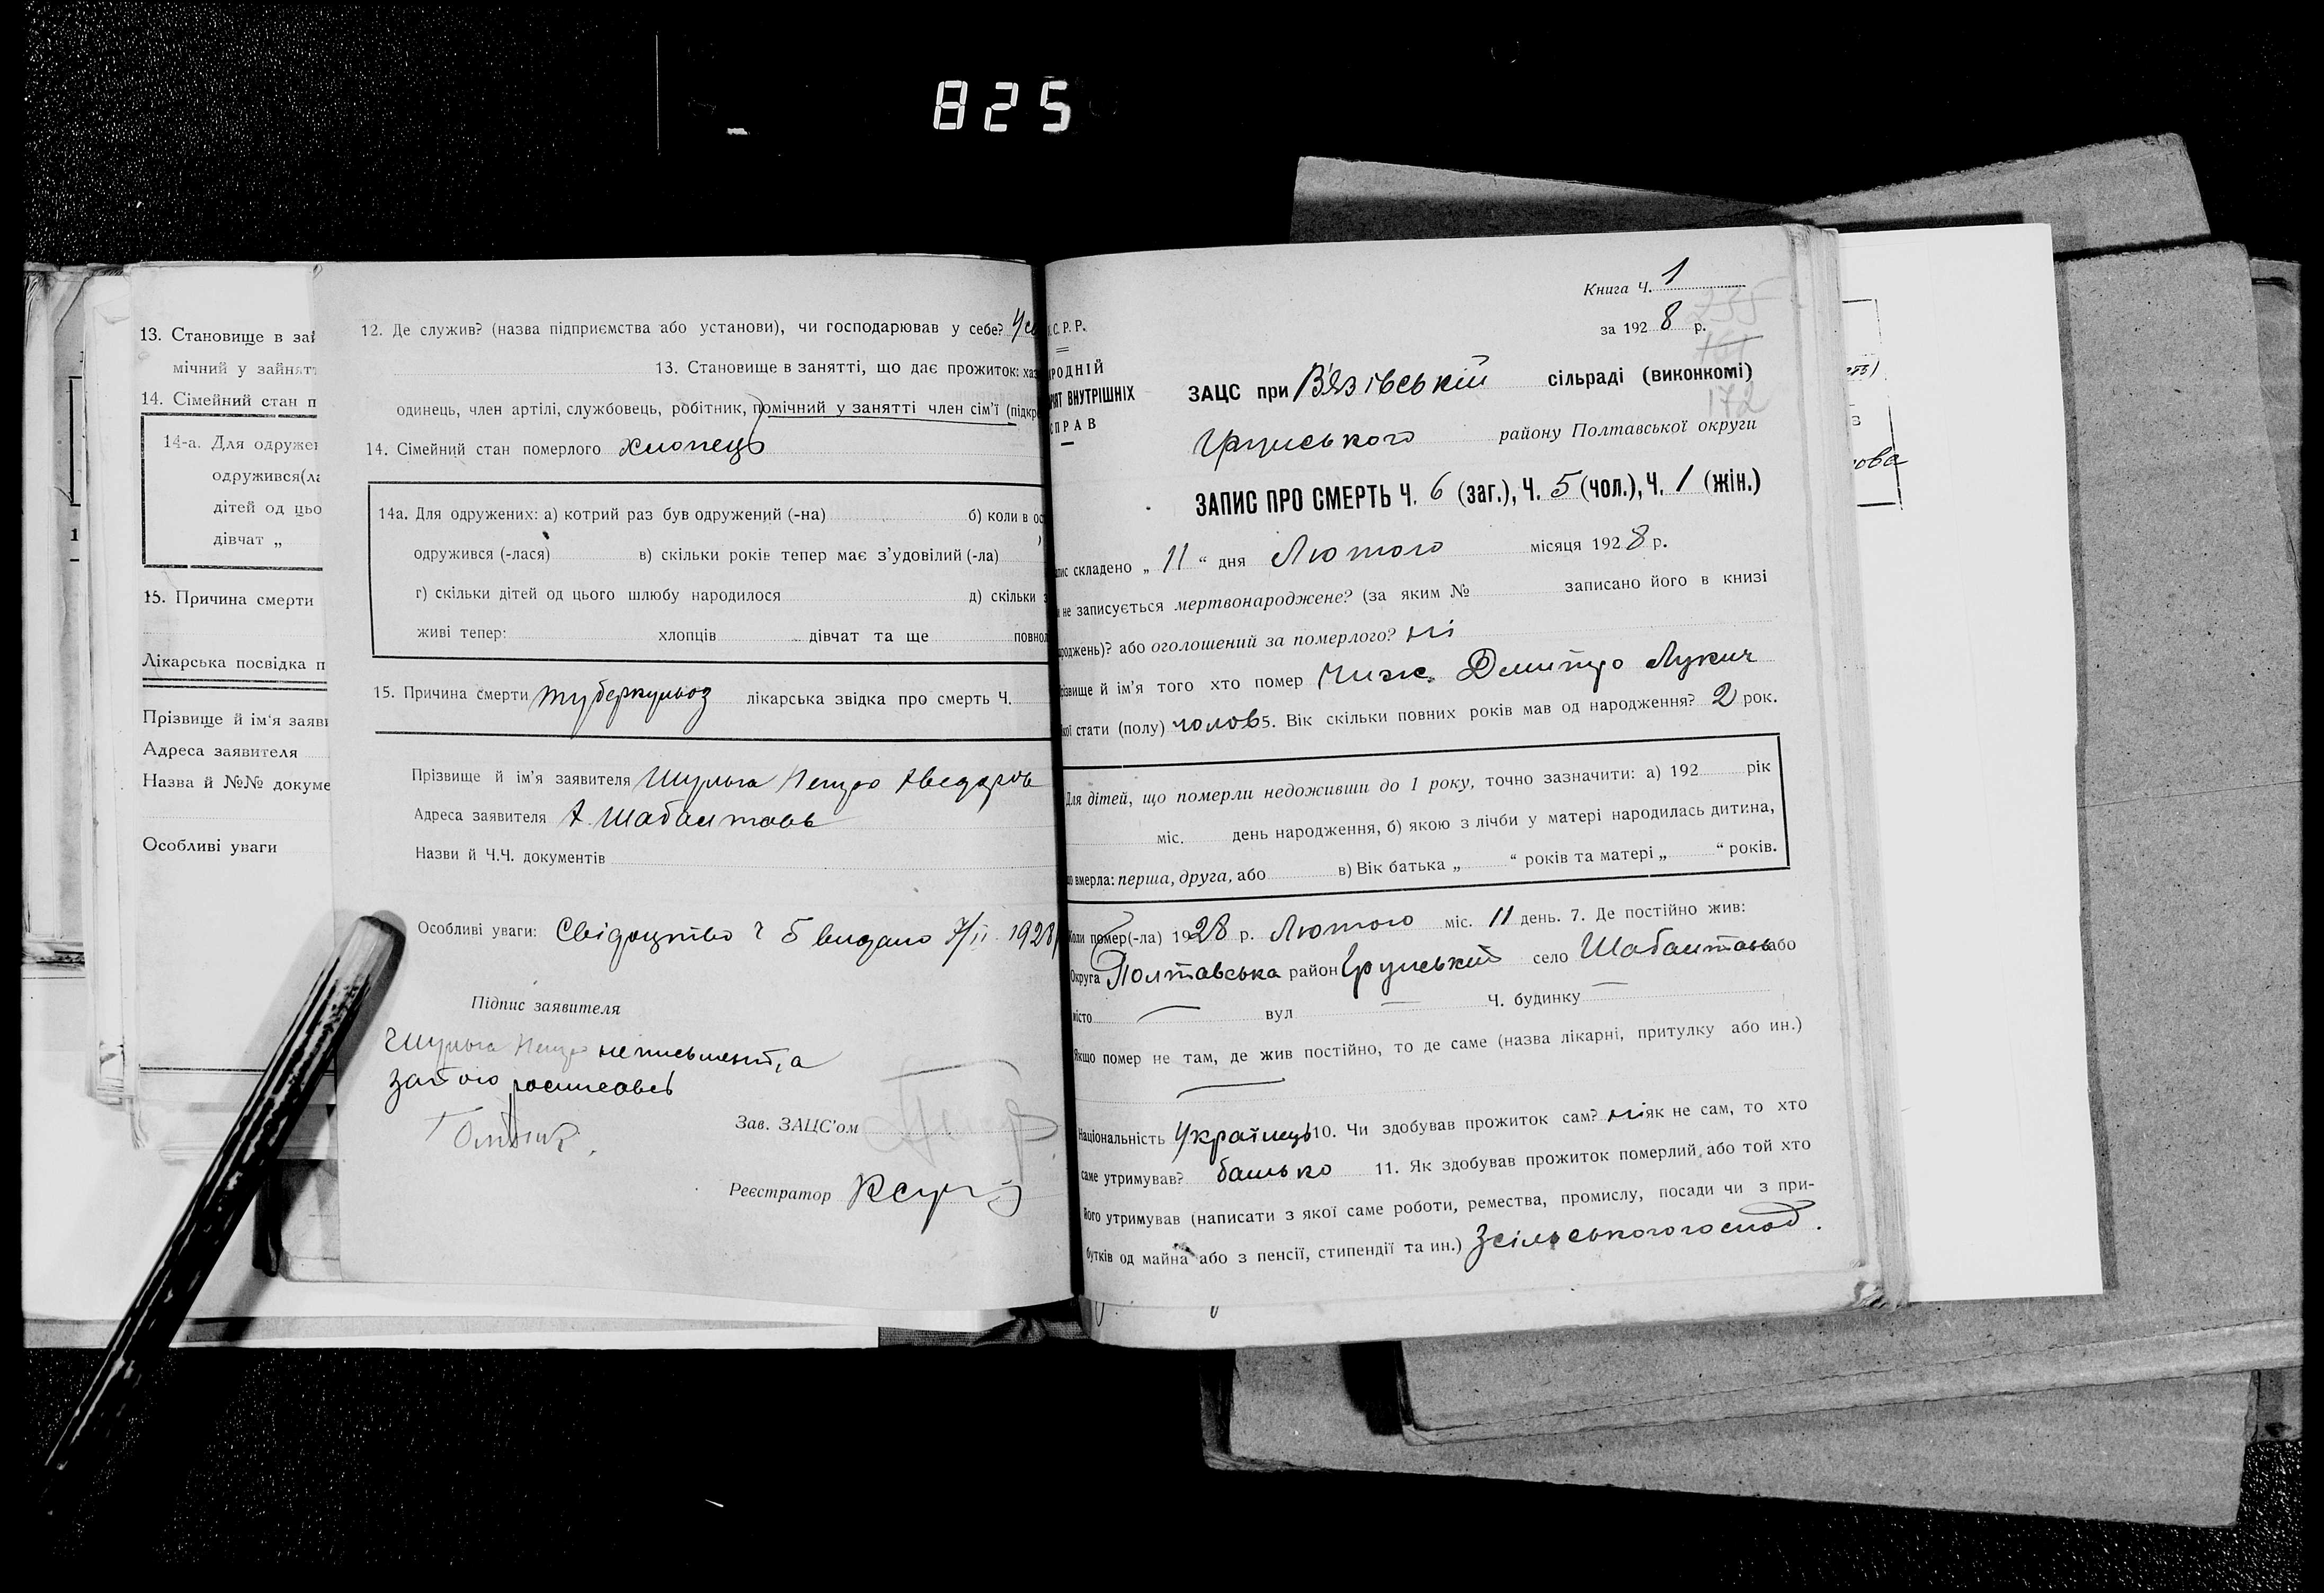 825
13. Становище в зай
мічний у зайнят
14. Сімейний стан п
14-а. Для одружен
одружився(ла
дітей од цьо
дівчат „
15. Причина смерти
Лікарська посвідка п
Прізвище й ім'я заяви
Адреса заявителя
Назва й №№ докуме
Особливі уваги
12. Де служив? (назва підприємства або установи), чи господарював у себе?
13. Становище в занятті, що дає прожиток: хаз
одинець, член артілі, службовець, робітник, помічний у занятті член сім'ї (підкр
14. Сімейний стан померлого хлопець
14а. Для одружених: а) котрий раз був одружений (-на) б) коли в ос
одружився (-лася) в) скільки років тепер має з'удовілий (-ла)
г) скільки дітей од цього шлюбу народилося д) скільки з
живі тепер: хлопців дівчат та ще повнол
15. Причина смерти туберкульоз лікарська звідка про смерть Ч.
Прізвище й ім'я заявителя Шульга Петро
Адреса заявителя х. Шабалтаєв
Назви й Ч.Ч. документів
Особливі уваги: Свідоцтво ч 5 видано 7/II 1928
Підпис заявителя
Шульга Петро неписьмені, а
за його росписавсь
Зав. ЗАЦС'ом
Реєстратор
Книга Ч. 1
235
за 192 8 р.
161
172
С. Р. Р.
РОДНІЙ
РІЯТ ВНУТРІШНІХ
СПРАВ
ЗАЦС при В'язівській сільраді (виконкомі)
Грунського району Полтавської округи
ЗАПИС ПРО СМЕРТЬ Ч. 6 (заг.), Ч. 5 (чол.), Ч. 1 (жін.)
пис складено „ 11 “ дня Лютого місяця 192 8 р.
и не записується мертвонароджене? (за яким № записано його в книзі
роджень)? або оголошений за померлого? ні
різвище й ім'я того хто помер Чиж Дмитро Лукич
кої стати (полу) чолов 5. Вік скільки повних років мав од народження? 2 рок.
Для дітей, що померли недоживши до 1 року, точно зазначити: а) 192 рік
міс. день народження, б) якою з лічби у матері народилась дитина,
що вмерла: перша, друга, або в) Вік батька „ “ років та матері „ “ років.
Коли помер(-ла) 1928 р. Лютого міс. 11 день. 7. Де постійно жив:
Округа Полтавська район Грунський село або
місто — вул — Ч. будинку —
Якщо помер не там, де жив постійно, то де саме (назва лікарні, притулку або ин.)
—
Національність Українець 10. Чи здобував прожиток сам? ні як не сам, то хто
саме утримував? батько 11. Як здобував прожиток померлий або той хто
його утримував (написати з якої саме роботи, ремества, промислу, посади чи з при-
бутків од майна або з пенсії, стипендії та ин.) З сільського господ.
ова